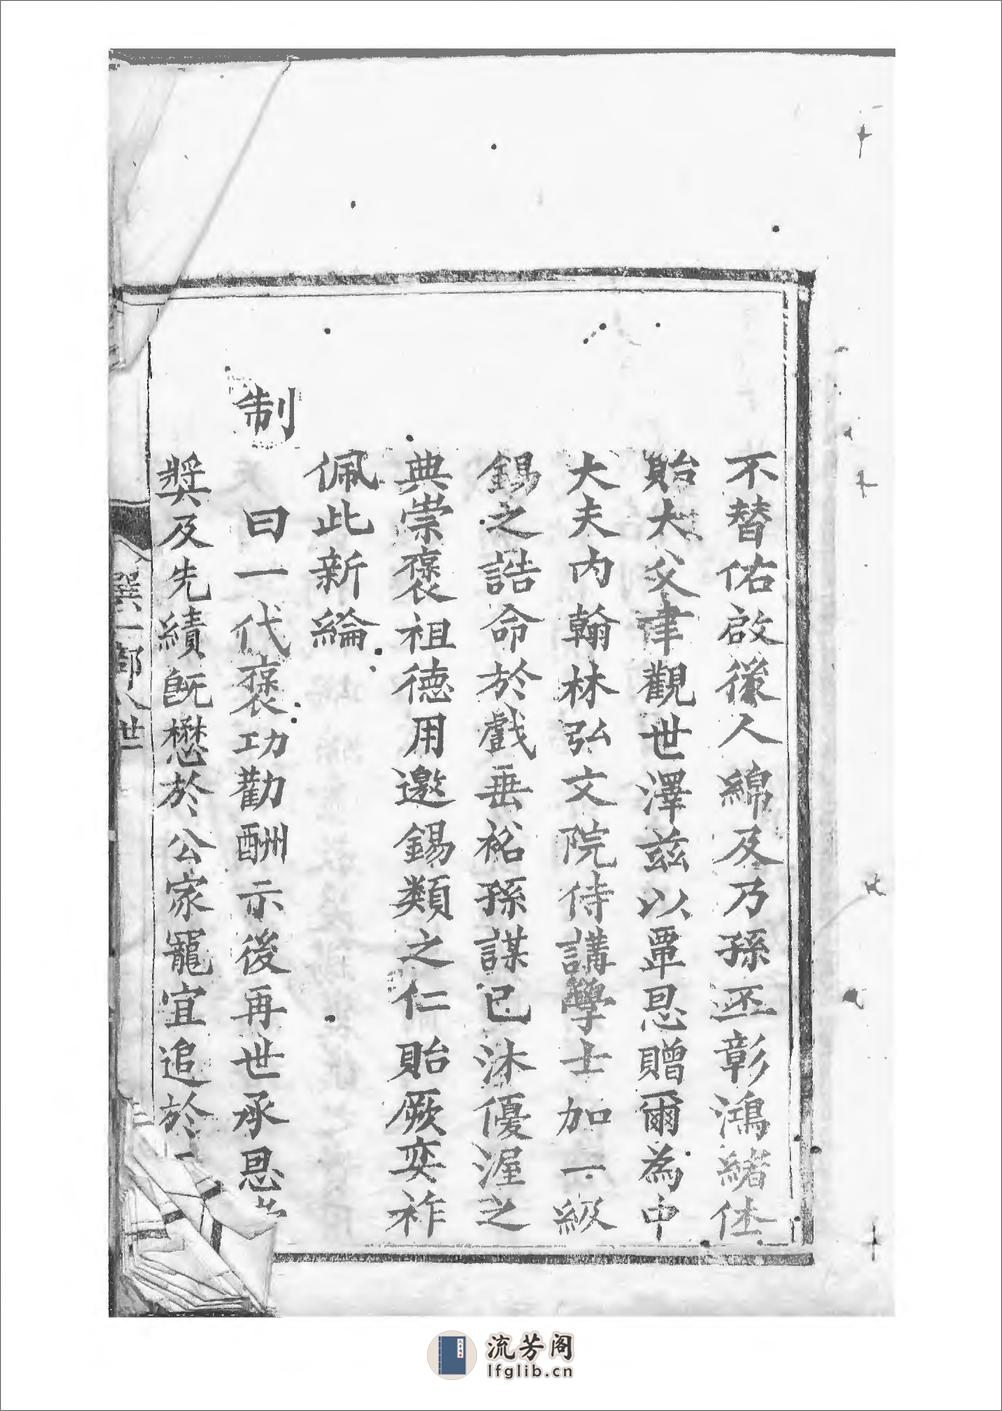 不替佑啟後人綿及乃孫丕彰鴻緒伕
貽大父聿觀世澤茲以覃恩贈爾為中
大夫內翰林弘文院侍講學士加一級
錫之誥命於戲垂裕孫謀已沐優渥之
典崇褒祖德用邀錫類之仁貽厥奕祚
佩此新綸
制
曰一代褒功勸酬示後再世承恩
獎及先績旣懋於公家寵宜追於
世
流芳阁
lfglib.cn